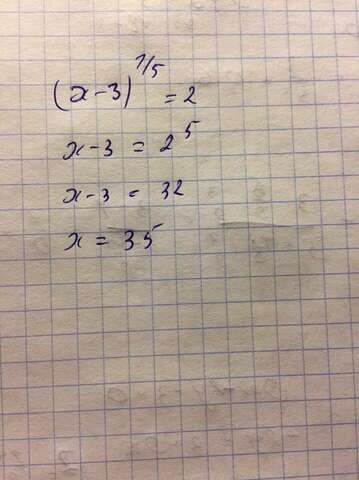 (x-3)^1/5 = 2
x-3 = 2^5
x-3 = 32
x = 35